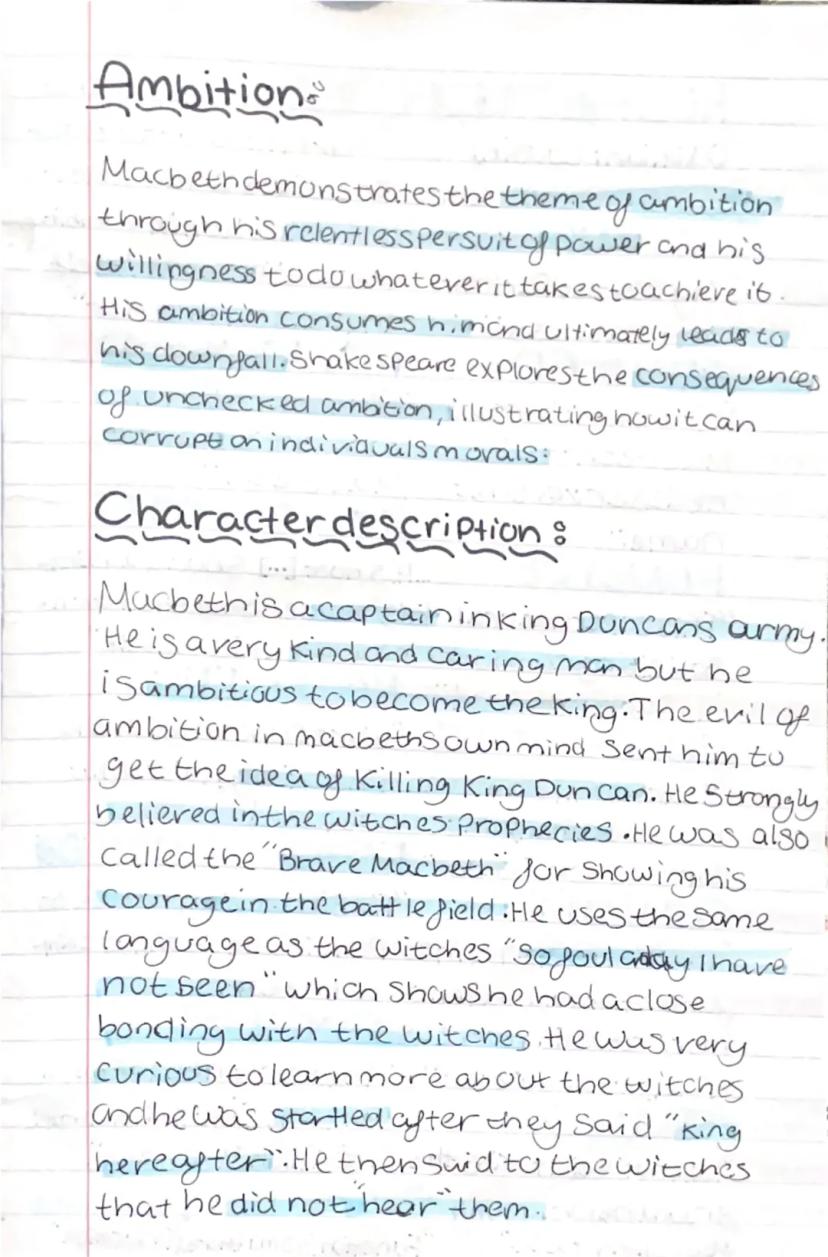 Ambition:
Macbeth demonstrates the theme of ambition
through his relentless persuit of power and his
willingness to do whatever it takes to achieve it.
His ambition consumes him and ultimately leads to
his downfall. Shakespeare explores the consequences
of unchecked ambition, illustrating how it can
corrupt an individuals morals.
Character description:
Macbeth is a captain in King Duncans army.
He is a very kind and caring man but he
is ambitious to become the king. The evil of
ambition in macbeths own mind sent him to
get the idea of killing King Duncan. He Strongly
believed in the witches prophecies. He was also
called the "Brave Macbeth" for showing his
courage in the battlefield. He uses the same
language as the witches "So foul a day I have
not seen" which shows he had a close
bonding with the witches. He was very
curious to learn more about the witches
and he was startled after they said "King
hereafter". He then said to the witches
that he did not "hear" them.